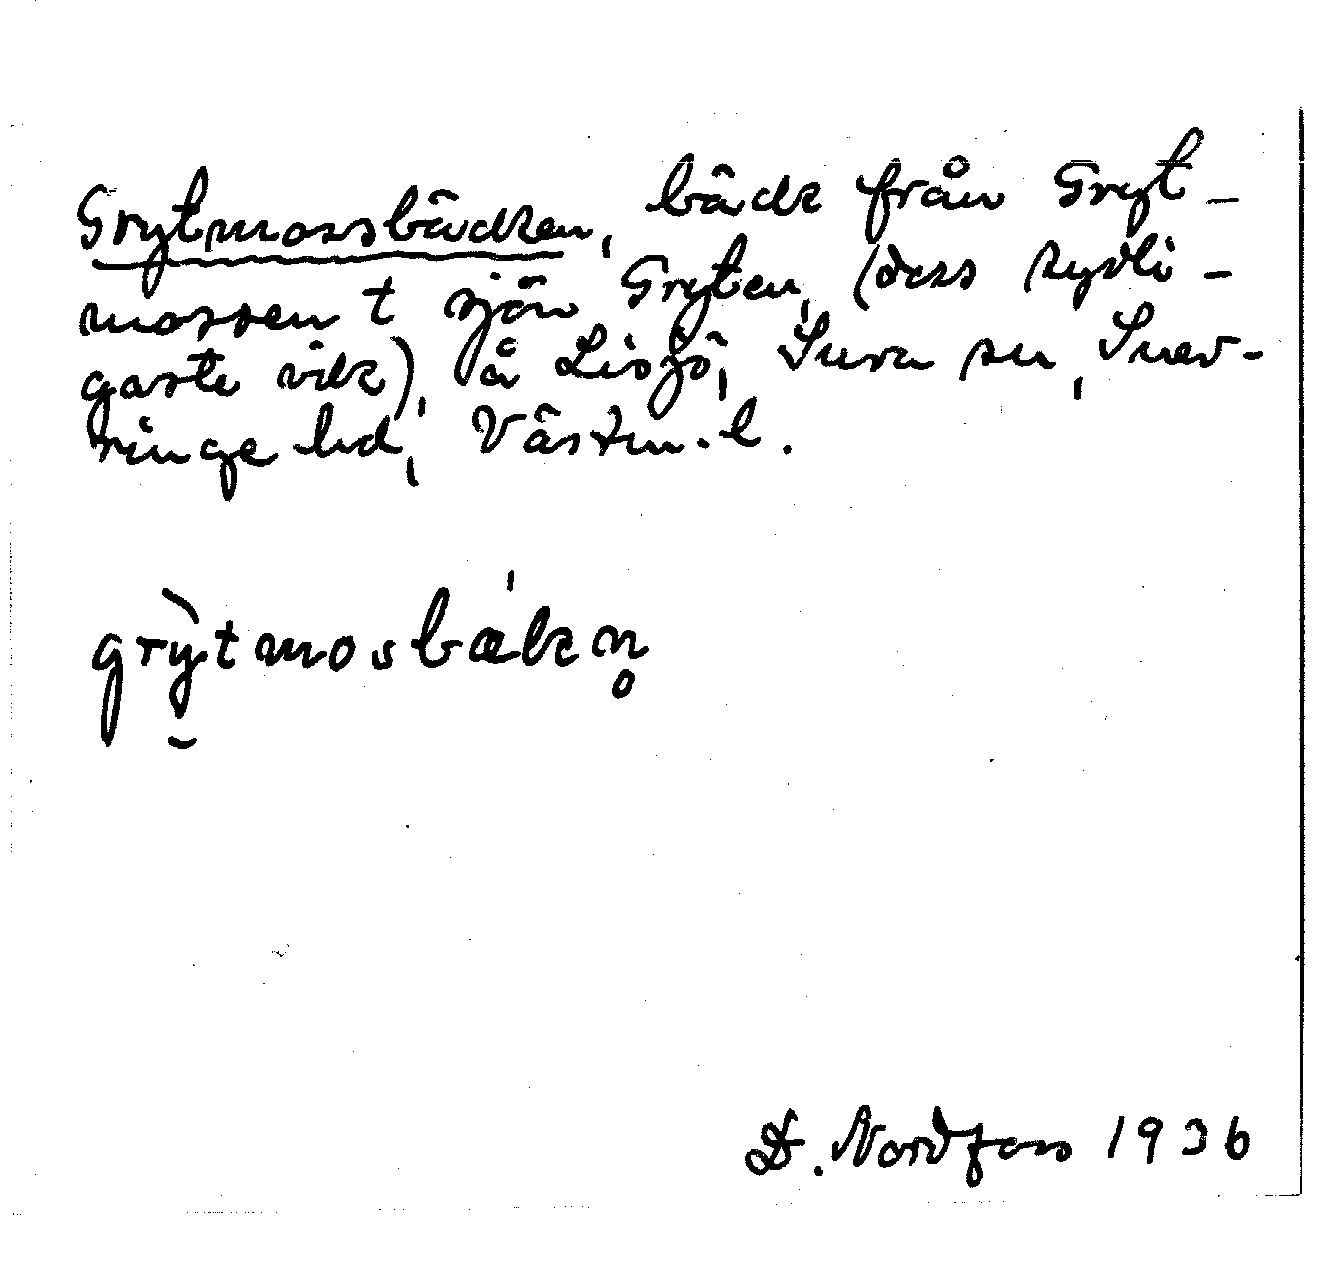 Grytmossbäcken, bäck från Gryt-
mossen t sjön Gryten, (dess sydli-
gaste vik), å Lisjö, Sura sn, Snev-
ringe hd, Västm. l.
grỳtmosbækn̥
Nordfors 1936